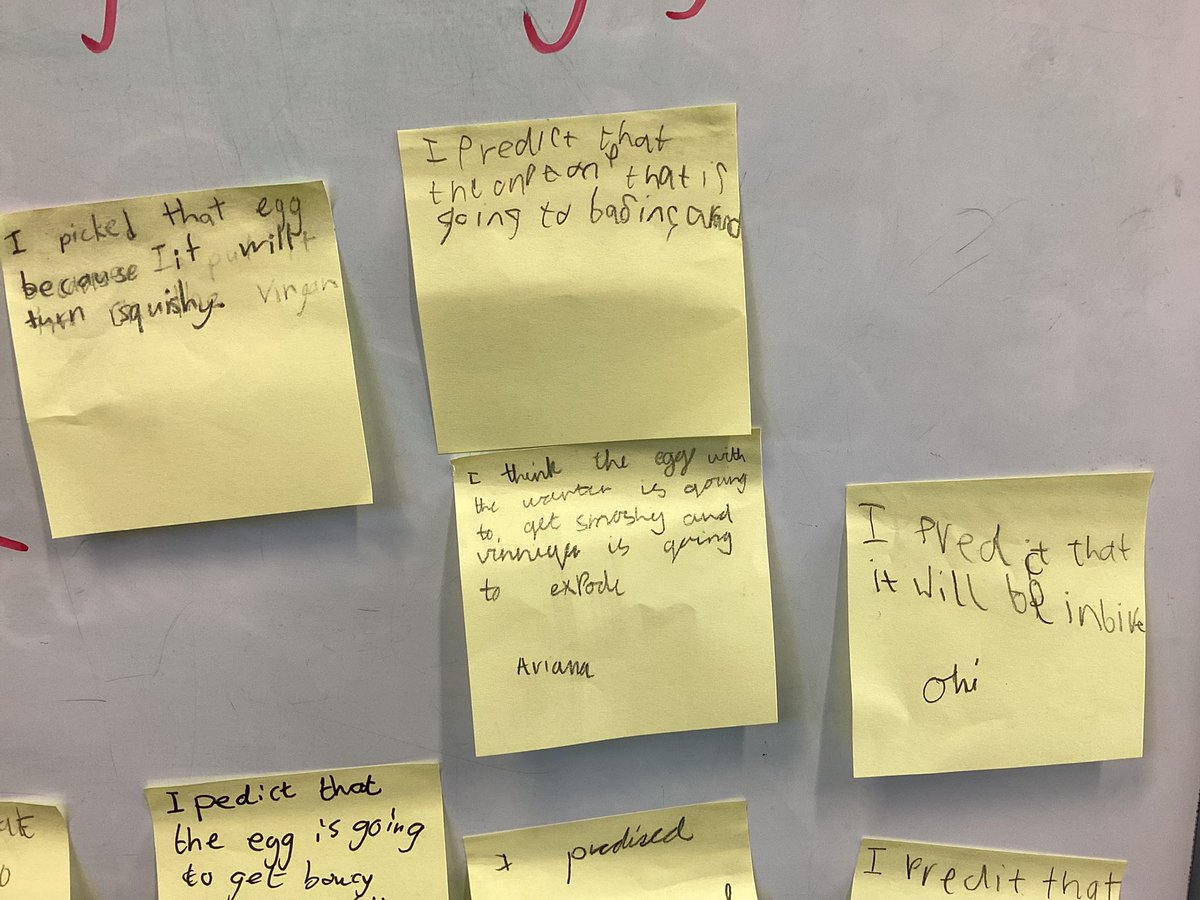 I picked that egg
because I it will
turn squishy.
I Predict that
that is
going to
I think the egg with
the is going
to get smoshy and
is going
to exPode
Ariana
I Predict that
it will be
Ohi
I pedict that
the egg is going
to get boucy
I predized
I Predit that